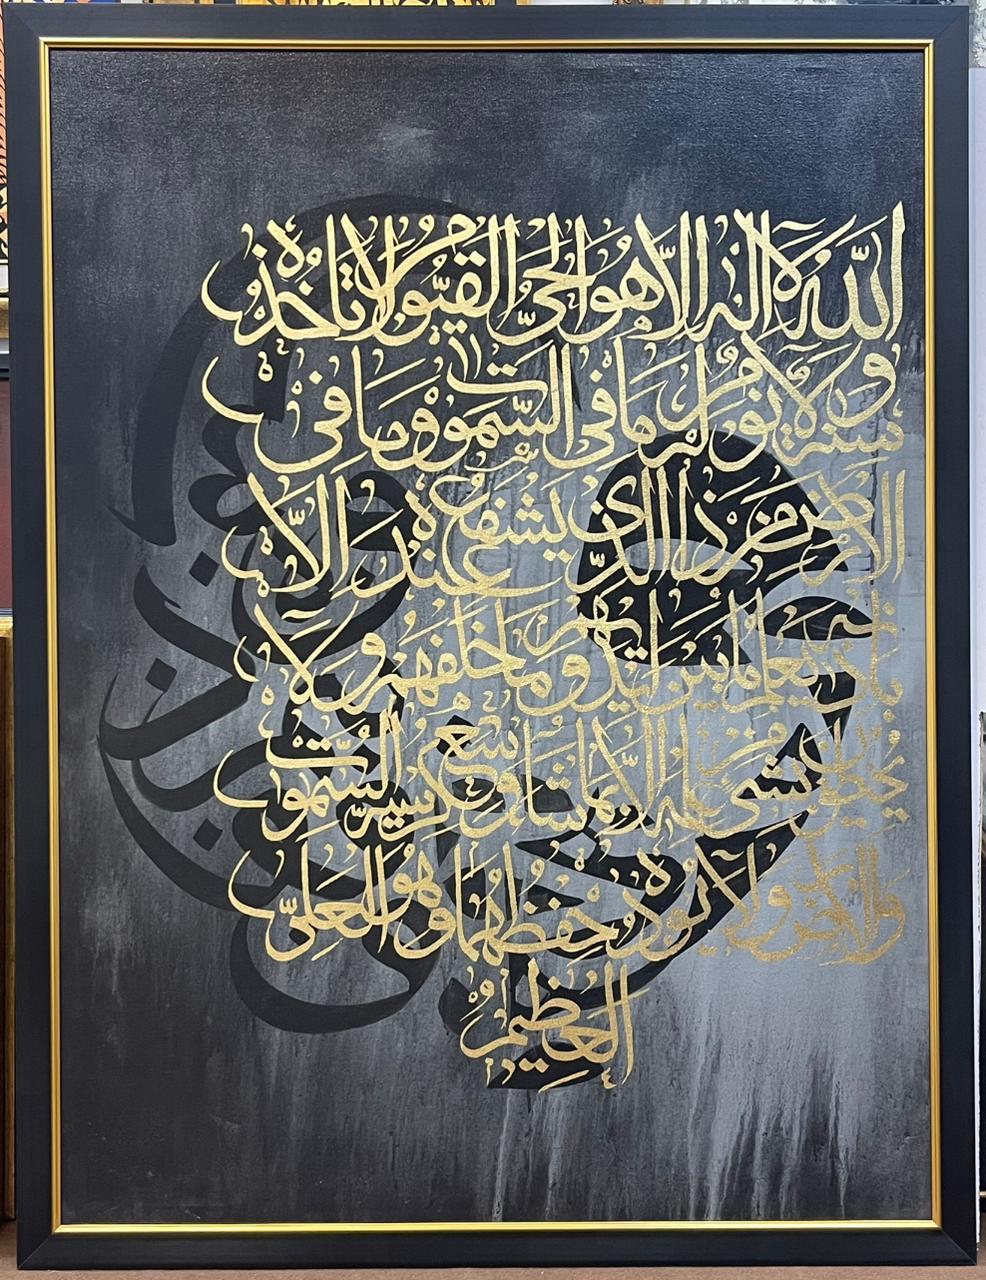 الله لا اله الا هو الحي القيوم لا تاخذه
سنة ولا نوم له ما في السموت وما في
الارض من ذا الذي يشفع عنده الا
باذنه يعلم ما بين ايديهم وما خلفهم ولا
يحيطون بشي من علمه الا بما شاء وسع كرسيه السموات
والارض ولا يوده حفظهما وهو العلي
العظيم